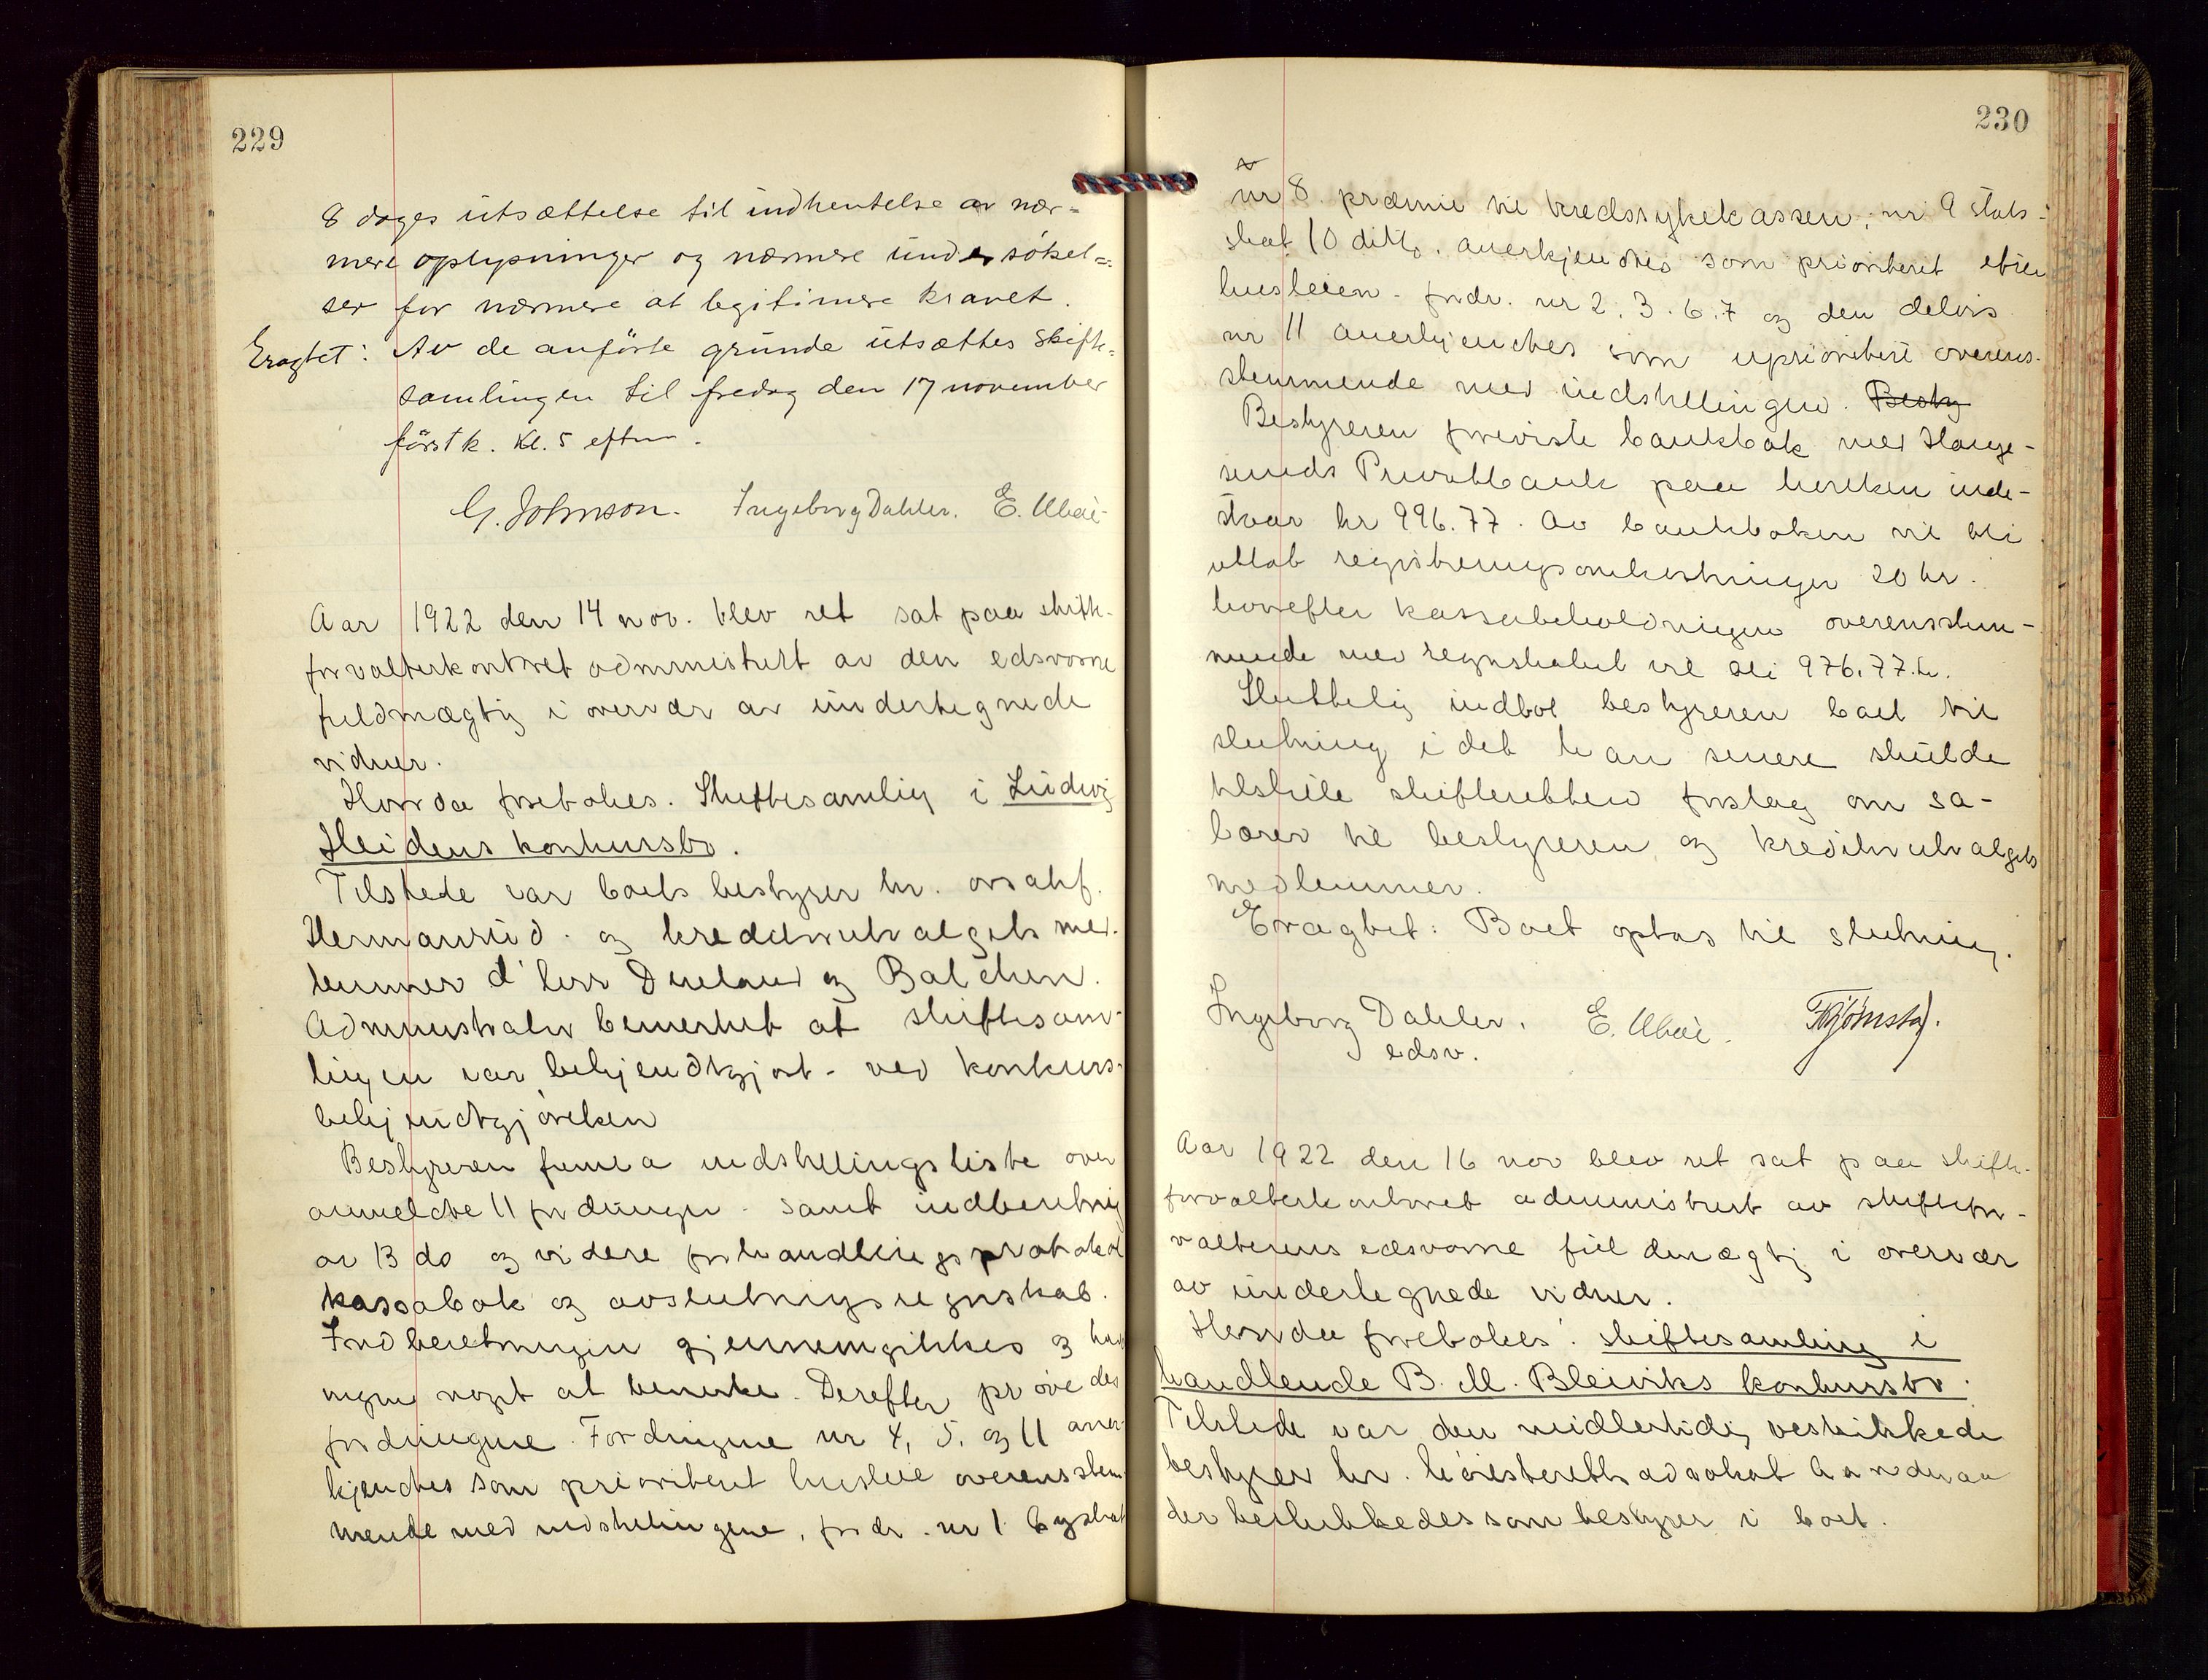 229
8 dages utsættelse til indhentelse av nær=
mere oplysninger og nærmere undersøkel=
ser for nærmere at legitimere kravet.
Eragtet: Av de anførte grunde utsættes skifte=
samlingen til fredag den 17 november
førstk. kl. 5 eftm.
G. Johnson. Ingeborg Dahler. E. 
Aar 1922 den 14 nov. blev ret sat paa skifte-
forvalterkontoret administrert av den edsvorne
fuldmægtig i overvær av undertegnede
vidner.
Hvorda foretokes. Skiftesamling i Ludvig
Heidens konkursbo.
Tilstede var boets bestyrer hr. ovsakf.
Hermansrud og kreditorutvalgets med-
lemmer d'herr Dueland og Balchen.
Administrator bemerket at skiftesam-
lingen var bekjendtgjort ved konkurs-
bekjendtgjørelsen
Bestyreren fremla indstillingsliste over
anmeldte 11 fordringer samt indberetning
av 13 do og videre forhandlingsprotokol
kassabok og avslutningsregnskab.
Indberetningen gjennemgikkes og had
ingen noget at bemerke. Derefter prøvedes
fordringene. Fordringene nr 4, 5, og 11 aner-
kjendtes som prioritert husleie overensstem-
mende med indstillingene, fordr. nr 1 byskat
230
nr 8 præmie til kredssykekassen, nr 9 stats-
skat 10 ditto. anerkjendtes som prioritert efter
husleien. fordr. nr 2. 3. 6. 7 og den delvis
nr 11 anerkjendtes som uprioritert overens-
stemmende med indstillingen. Besty
Bestyreren foreviste bankbok med Hauge-
sunds Privatbank paa hvilken inde-
staar kr 996.77. Av bankboken vil bli
uttat registreringsomkostninger 20 kr.
hvorefter kassabeholdningen overensstem-
mende med regnskabet vil bli 976.77 kr.
Sluttelig indbød bestyreren boet til
slutning idet han senere skulde
tilstille skifteretten forslag om sa-
lærer til bestyreren og kreditorutvalgets
medlemmer.
Eragtet: Boet optas til slutning.
Ingeborg Dahler. E. 
edsv.
Aar 1922 den 16 nov blev ret sat paa skifte-
forvalterkontoret administrert av skiftefor-
valterens edsvorne fuldmægtig i overvær
av undertegnede vidner.
Hvorda foretokes: skiftesamling i
handlende B. M. Bleiviks konkursbo.
Tilstede var den midlertidig beskikkede
bestyrer hr. høiesteretsadvokat Aanderaa
der beskikkedes som bestyrer i boet.